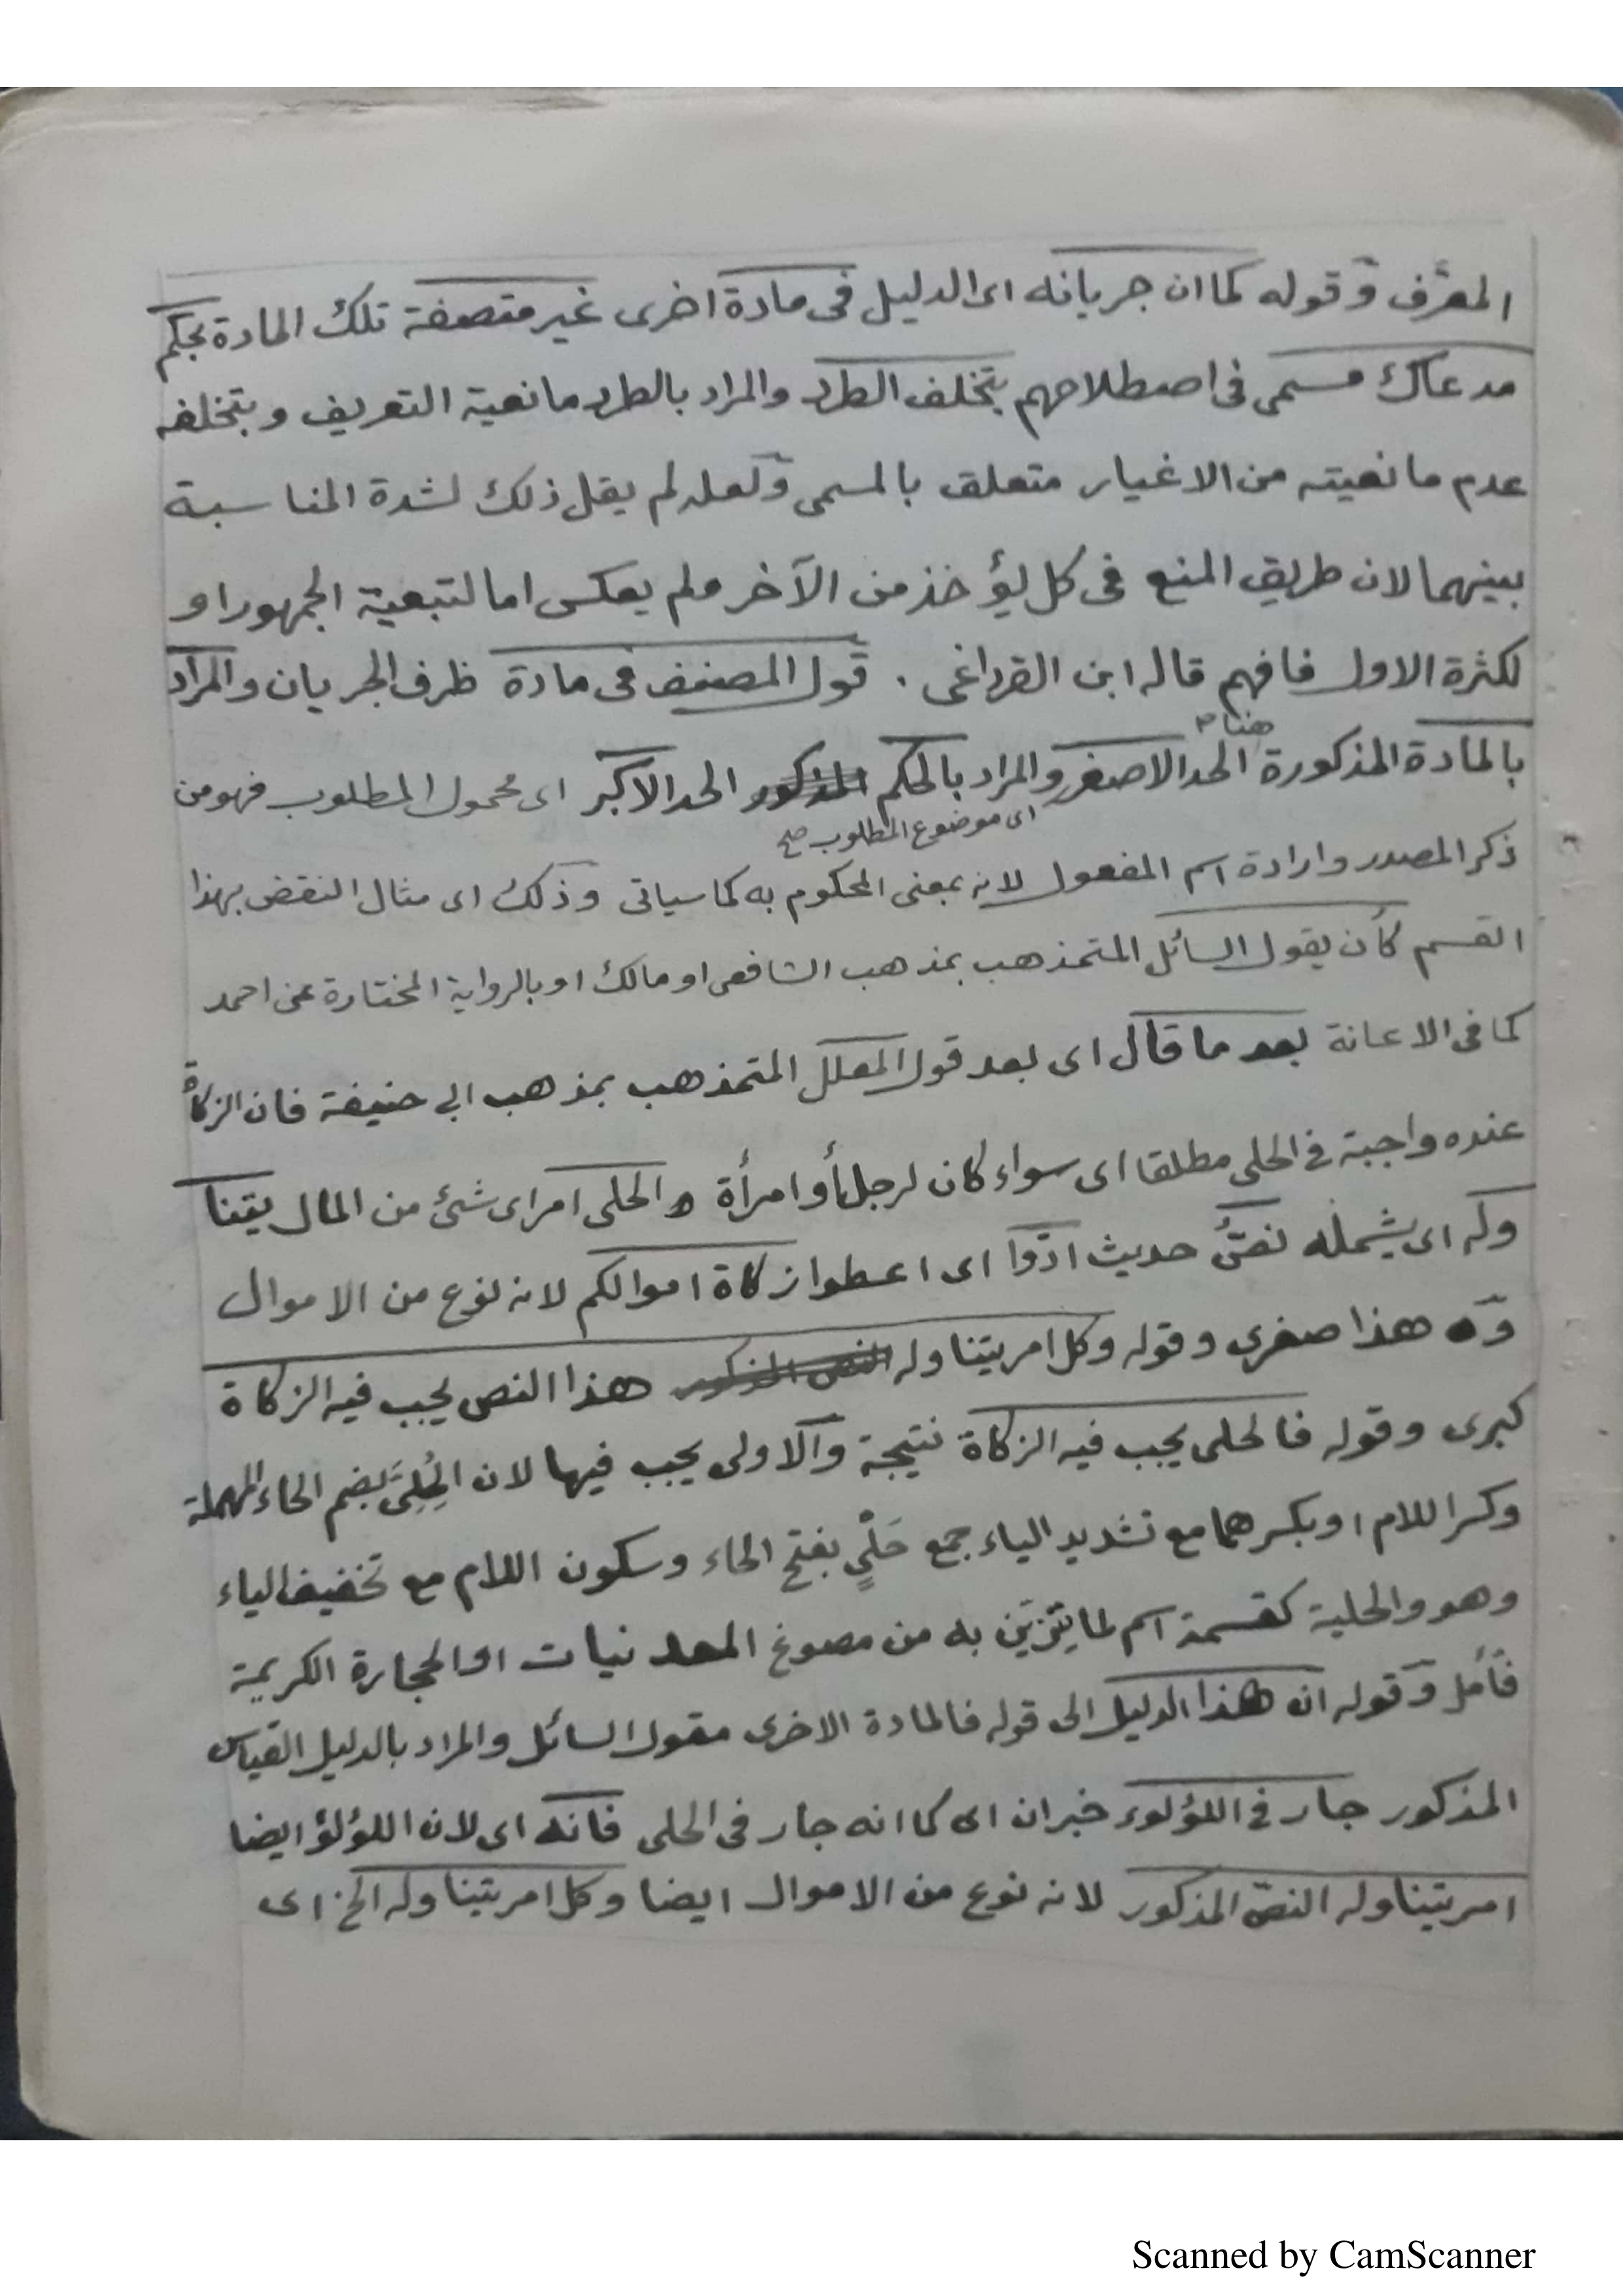 المعرَّف وقوله كما ان جريانه اى الدليل فى مادة اخرى غير متصفة تلك المادة بحكم
مدعاك مسمى فى اصطلاحهم بتخلف الطرد والمراد بالطرد مانعية التعريف وبتخلفه
عدم مانعيته من الاغيار متعلق بالمسمى ولعله لم يقل ذلك لشدة المناسبة
بينهما لان طريق المنع فى كل يؤخذ من الآخر ولم يعكس اما لتبعية الجمهور او
لكثرة الاول فافهم قاله ابن القرداغى . قول المصنف فى مادة ظرف الجريان والمراد
هنا
بالمادة المذكورة الحد الاصغر والمراد بالحكم المذكور الحد الاكبر اى محمول المطلوب فهو من
اى موضوع المطلوب صح
ذكر المصدر وارادة اسم المفعول لانه بمعنى المحكوم به كما سياتى وذلك اى مثال النقض بهذا
القسم كأن يقول السائل المتمذهب بمذهب الشافعى او مالك او بالرواية المختارة عن احمد
كما فى الاعانة بعد ما قال اى بعد قول المعلل المتمذهب بمذهب ابى حنيفة فان الزكاة
عنده واجبة فى الحلى مطلقا اى سواء كان لرجل أو امرأة والحلى امر اى شئ من المال يتنا
وله اى يشمله نصُّ حديث ادّوا اى اعطوا زكاة اموالكم لانه نوع من الاموال
وه هذا صغرى وقوله وكل امر يتناوله النص المذكور هذا النص يجب فيه الزكاة
كبرى وقوله فالحلى يجب فيه الزكاة نتيجة والاولى يجب فيها لان الحُلِىَّ بضم الحاء المهملة
وكسر اللام او بكسرهما مع تشديد الياء جمع حَلْىٍ بفتح الحاء وسكون اللام مع تخفيف الياء
وهو والحلية كقسمة اسم لما يتزين به من مصوغ المعدنيات او الحجارة الكريمة
فأمل وقوله ان هذا الدليل الى قوله فالمادة الاخرى مقول السائل والمراد بالدليل القياس
المذكور جار فى اللؤلوء خبر ان اى كما انه جار فى الحلى فانه اى لان اللؤلؤ ايضا
امر يتناوله النصّ المذكور لانه نوع من الاموال ايضا وكل امر يتناوله الخ اى
Scanned by CamScanner